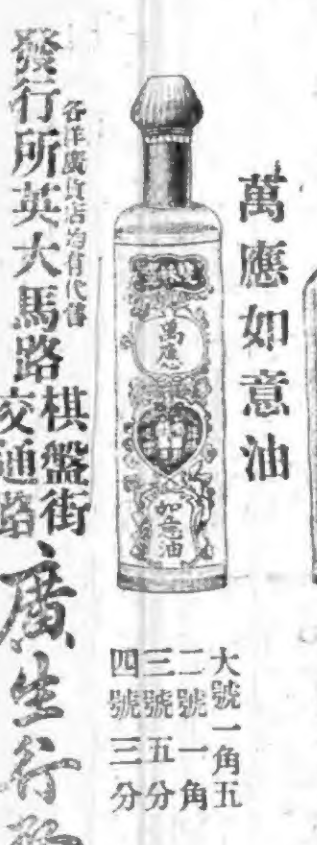 萬應如意油
雙妹嚜
萬應
如意油
大號一角五
二號一角
三號五分
四號三分
各洋廣貨店均有代售
發行所英大馬路
棋盤街
交通路
廣生行